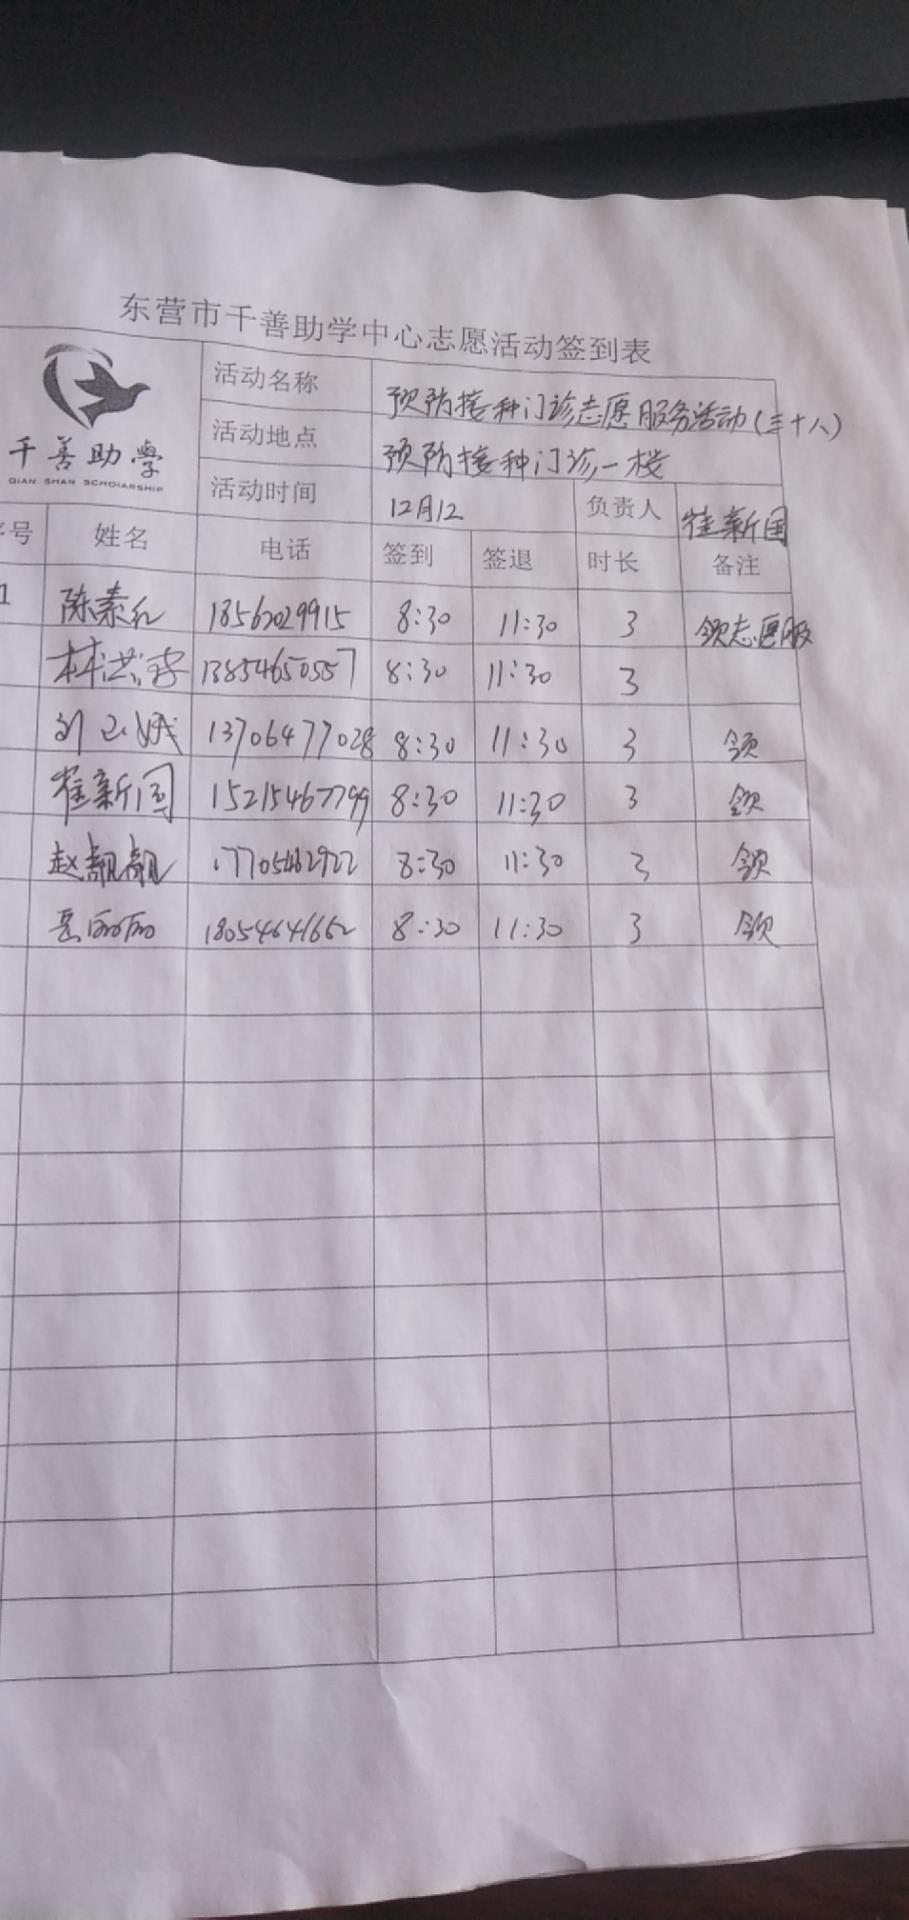 东营市千善助学中心志愿活动签到表
千善助學
QIAN SHAN SCHOLARSHIP
活动名称 预防接种门诊志愿服务活动(三十八)
活动地点 预防接种门诊一楼
活动时间 12月12 负责人 崔新国
序号 姓名 电话 签到 签退 时长 备注
1 陈素红 18562029915 8:30 11:30 3 领志愿服
林洪 13854650557 8:30 11:30 3
刘玉娥 13706477028 8:30 11:30 3 领
崔新国 15215467799 8:30 11:30 3 领
赵靓靓 17705462922 8:30 11:30 3 领
岳丽丽 18054641662 8:30 11:30 3 领